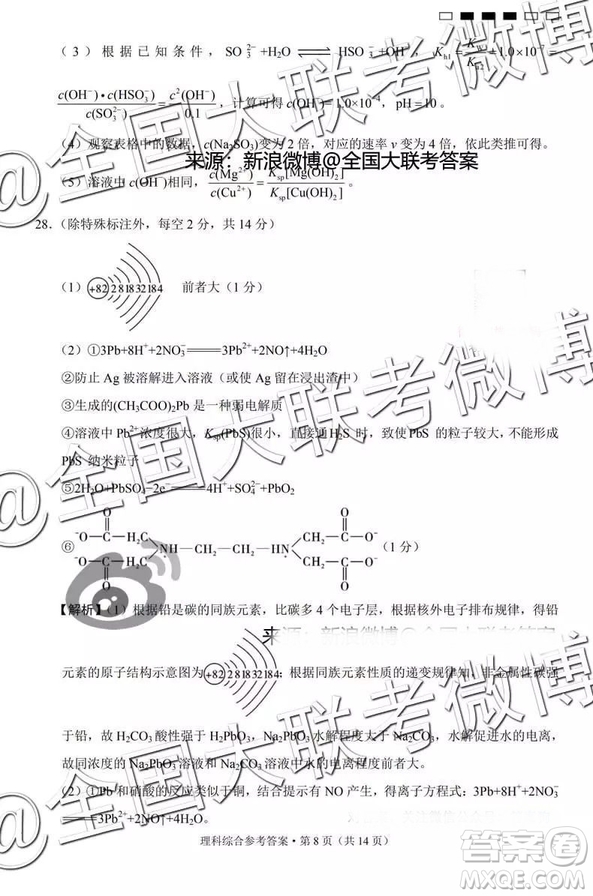 （3）根据已知条件，SO₃²⁻+H₂O⇌HSO₃⁻+OH⁻，K_h1=K_w/K_a2=1.0×10⁻⁷=
c(OH⁻)•c(HSO₃⁻)/c(SO₃²⁻)=c²(OH⁻)/0.1，计算可得c(OH⁻)=1.0×10⁻⁴，pH=10。
（4）观察表格中的数据，c(Na₂SO₃)变为2倍，对应的速率v变为4倍，依此类推可得。
来源：新浪微博@全国大联考答案
（5）溶液中c(OH⁻)相同，c(Mg²⁺)/c(Cu²⁺)=K_sp[Mg(OH)₂]/K_sp[Cu(OH)₂]。
28.（除特殊标注外，每空2分，共14分）
（1）+82 2 8 18 32 18 4 前者大（1分）
（2）①3Pb+8H⁺+2NO₃⁻═══3Pb²⁺+2NO↑+4H₂O
②防止Ag被溶解进入溶液（或使Ag留在浸出渣中）
③生成的(CH₃COO)₂Pb是一种弱电解质
④溶液中Pb²⁺浓度很大，K_sp(PbS)很小，直接通H₂S时，致使PbS的粒子较大，不能形成
PbS纳米粒子
⑤2H₂O+PbSO₄−2e⁻═══4H⁺+SO₄²⁻+PbO₂
⑥ O O
⁻O—C—H₂C CH₂—C—O⁻
NH—CH₂—CH₂—HN （1分）
⁻O—C—H₂C CH₂—C—O⁻
O O
【解析】（1）根据铅是碳的同族元素，比碳多4个电子层，根据核外电子排布规律，得铅
来源：新浪微博@全国大联考答案
元素的原子结构示意图为+82 2 8 18 32 18 4；根据同族元素性质的递变规律知，非金属性碳强
于铅，故H₂CO₃酸性强于H₂PbO₃，Na₂PbO₃水解程度大于Na₂CO₃，水解促进水的电离，
故同浓度的Na₂PbO₃溶液和Na₂CO₃溶液中水的电离程度前者大。
（2）①Pb和硝酸的反应类似于铜，结合提示有NO产生，得离子方程式：3Pb+8H⁺+2NO₃⁻
═══3Pb²⁺+2NO↑+4H₂O
理科综合参考答案·第8页（共14页）
@全国大联考微博
@全国大联考微博
@全国大联考微博
答案圈